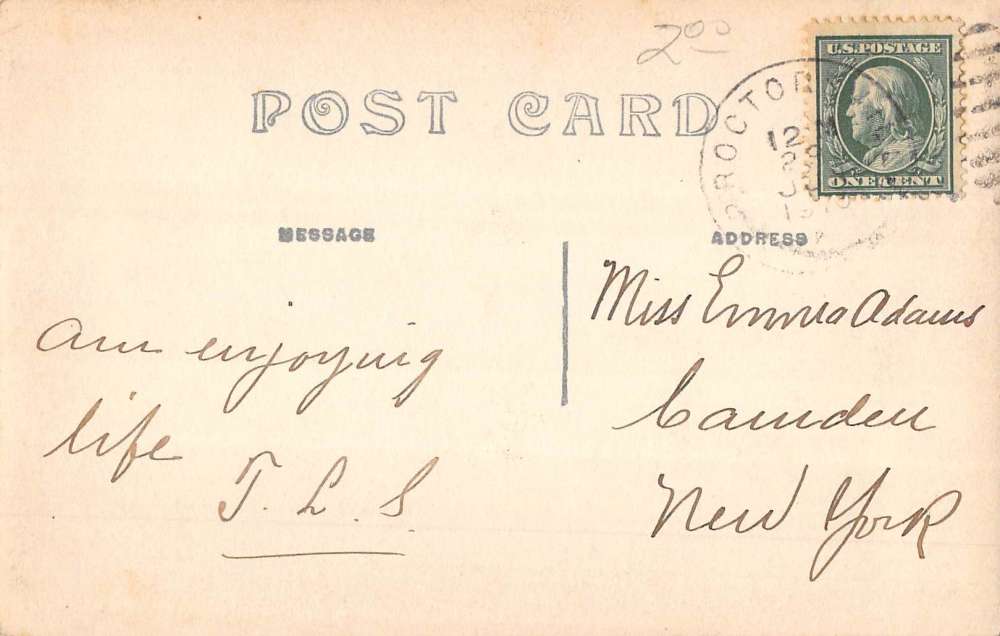 200
POST CARD
U.S. POSTAGE
ONE CENT
PROCTOR
12 M
MESSAGE
ADDRESS
Am enjoying
life
T. L. S.
Miss Emma Adams
Camden
New York